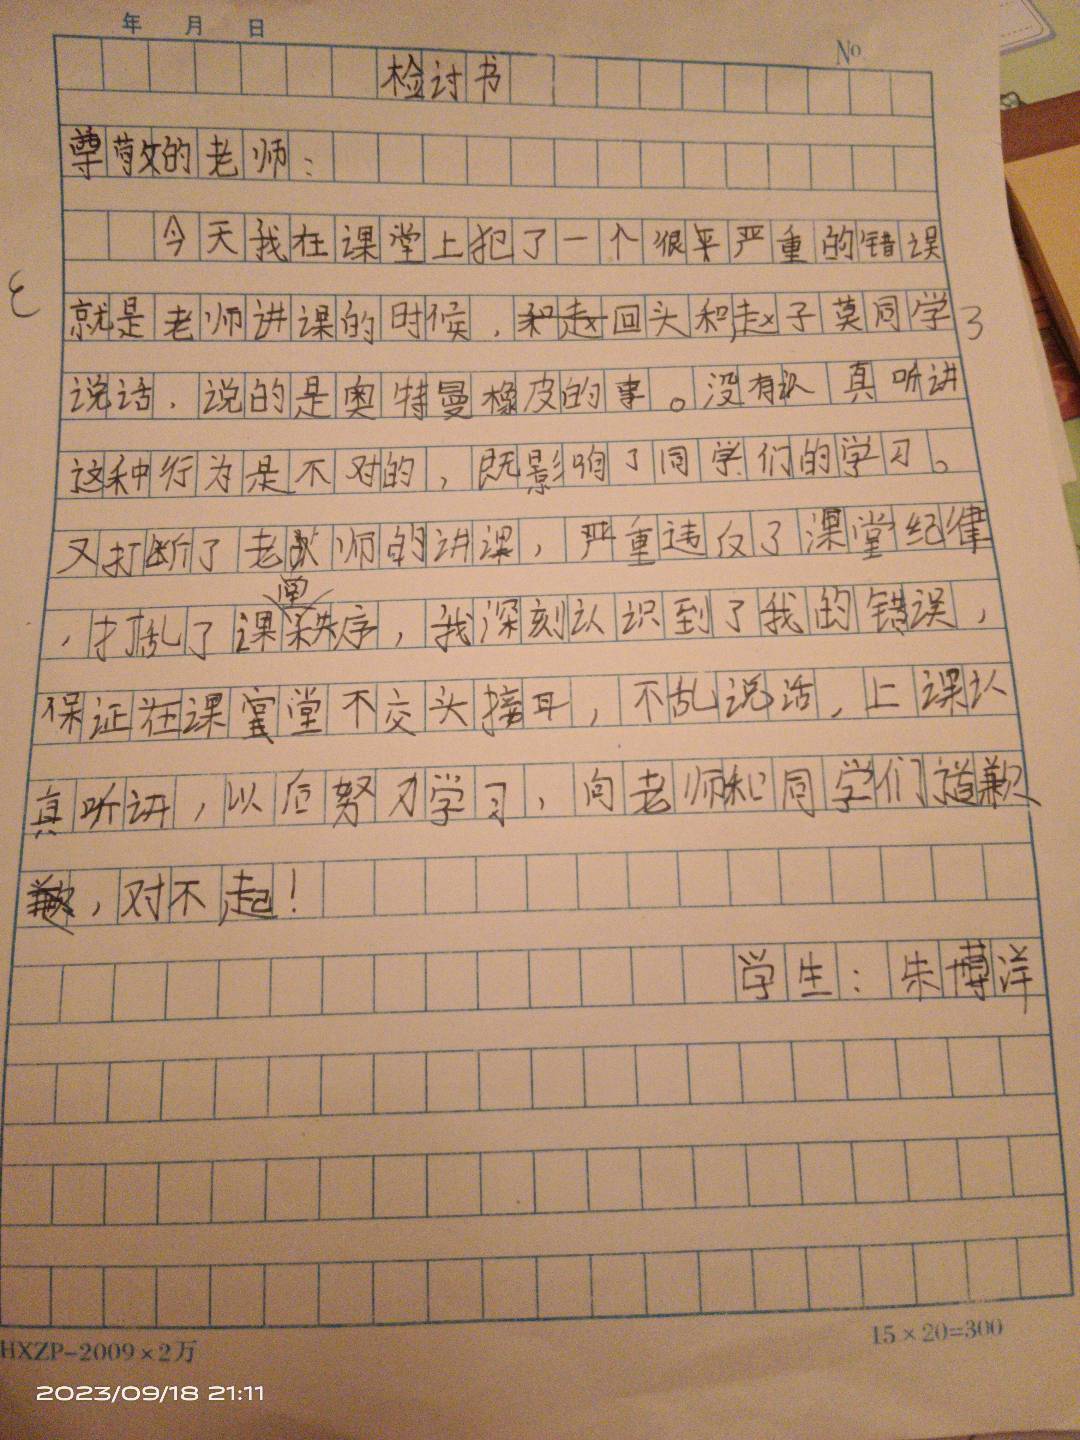 年 月 日
No
检讨书
尊敬的老师:
今天我在课堂上犯了一个很严重的错误
就是老师讲课的时候,回头和赵子莫同学
说话,说的是奥特曼橡皮的事。没有认真听讲
这种行为是不对的,既影响了同学们的学习。
又打断了老师的讲课,严重违反了课堂纪律
,打乱了课秩序,我深刻认识到了我的错误,
保证在课堂不交头接耳,不乱说话,上课认
真听讲,以后努力学习,向老师和同学们道歉
,对不起!
学生:朱博洋
HXZP-2009×2万
15×20=300
2023/09/18 21:11